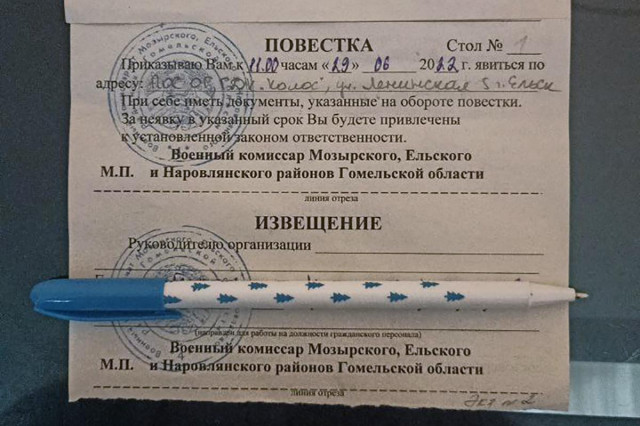 ПОВЕСТКА Стол № 1
Приказываю Вам к 11.00 часам «29» 06 2022 г. явиться по
адресу: ПОС ОР "ДК "Колос", ул. Ленинская 5 г. Ельск
При себе иметь документы, указанные на обороте повестки.
За неявку в указанный срок Вы будете привлечены
к установленной законом ответственности.
Военный комиссар Мозырского, Ельского
М.П. и Наровлянского районов Гомельской области
линия отреза
ИЗВЕЩЕНИЕ
Руководителю организации
(направлен для работы на должности гражданского персонала)
Военный комиссар Мозырского, Ельского
М.П. и Наровлянского районов Гомельской области
линия отреза
Экз. № 2